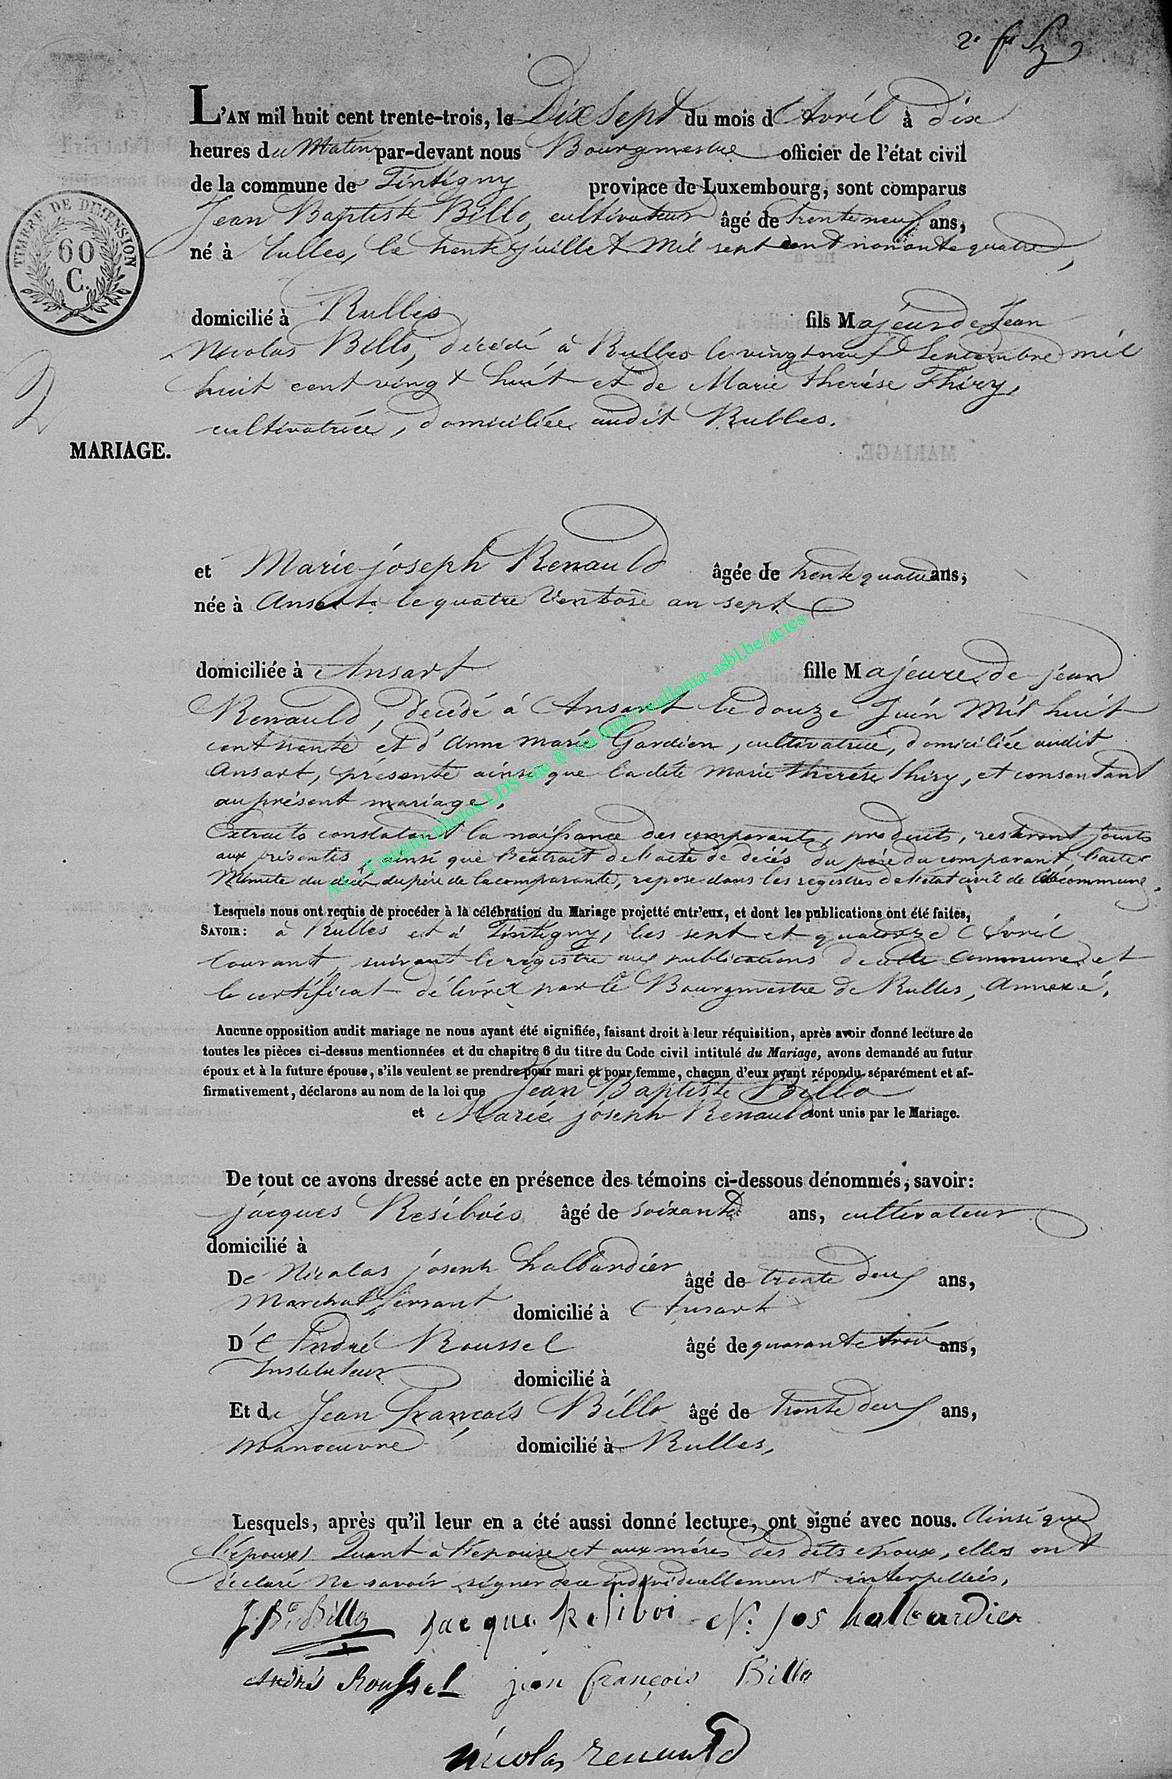 L'AN mil huit cent trente-trois, le Dix Sept du mois d'Avril à dix
heures du Matin par-devant nous Bourgmestre officier de l'état civil
de la commune de Tintigny province de Luxembourg, sont comparus
Jean Baptiste Billo, cultivateur âgé de trente neuf ans,
né à Rulles, le trente juillet Mil sept cent nonante quatre,
TIMBRE DE DIMENSION
60
C.
domicilié à Rulles fils Majeur de Jean
Nicolas Billo, décédé à Rulles le vingt neuf Septembre mil
huit cent vingt huit et de Marie therése Thiry,
cultivatrice, domiciliée audit Rulles.
MARIAGE.
et Marie joseph Renauld âgée de trente quatre ans,
née à Ansart le quatre Ventose an sept
domiciliée à Ansart fille Majeure de jean
Renauld, décédé à Ansart le douze Juin Mil huit
cent trente et d'Anne marie Gardien, cultivatrice, domiciliée audit
Ansart, présente ainsi que ladite Marie therése thiry, et consentant
au présent mariage.
Extraits constatant la naissance des comparants, produits, resteront joints
aux présentes ainsi que l'extrait de l'acte de décés du père du comparant, l'acte
Minute du décés du père de la comparante, repose dans les registres de l'état civil de commune.
Lesquels nous ont requis de procéder à la célébration du Mariage projetté entr'eux, et dont les publications ont été faites,
SAVOIR: à Rulles et à Tintigny, les sept et quatorze Avril
Courant, suivant le registre aux publications de cette Commune et
le certificat délivré par le Bourgmestre de Rulles, Annexé.
Aucune opposition audit mariage ne nous ayant été signifiée, faisant droit à leur réquisition, après avoir donné lecture de
toutes les pièces ci-dessus mentionnées et du chapitre 6 du titre du Code civil intitulé du Mariage, avons demandé au futur
époux et à la future épouse, s'ils veulent se prendre pour mari et pour femme, chacun d'eux ayant répondu séparément et af-
firmativement, déclarons au nom de la loi que Jean Baptiste Billo
et Marie joseph Renauld sont unis par le Mariage.
De tout ce avons dressé acte en présence des témoins ci-dessous dénommés, savoir:
jacques Resibois âgé de soixante ans, cultivateur
domicilié à
De Nicolas joseph halbardier âgé de trente deux ans,
Marchal ferrant domicilié à Ansart
D'André Roussel âgé de quarante trois ans,
Instituteur domicilié à
Et de Jean François Billo âgé de trente deux ans,
manoeuvre domicilié à Rulles,
Lesquels, après qu'il leur en a été aussi donné lecture, ont signé avec nous. Ainsi que
l'époux, Quant à l'épouse et aux méres des dits époux, elles ont
déclaré ne savoir signer de ce individuellement interpellées.
J. Bte Billo jacque Resiboi N. jos halbardier
André Roussel jean françois Billo
nicolas renauld
A.C. Tintigny photos LDS site ® via http://wallonia-asbl.be/actes